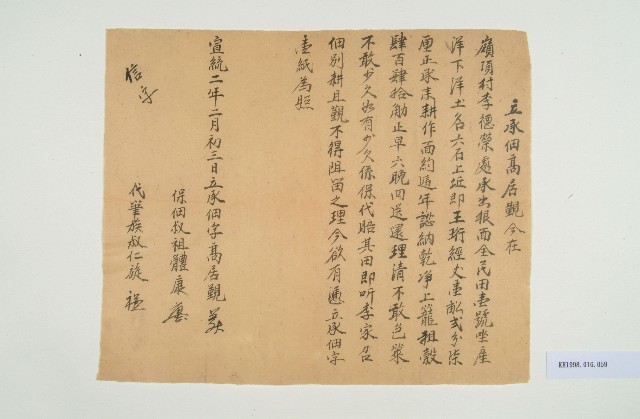 立承佃高居觀今在
嶺頂村李德榮處承出根面全民田壹號坐產
洋下洋土名六石上近即王珩經丈壹畝弍分柒
厘正承來耕作面約遞年認納乾净上籠租穀
肆百肆拾觔正早六晚四送還理清不敢包粃
不敢少欠如有少欠係保代賠其田即听李家召
佃別耕且觀不得阻留之理今欲有憑立承佃字
壹紙為照
宣統二年二月初三日立承佃字高居觀
保佃叔祖體康
代筆族叔仁旋
信字
KH1998.016.059